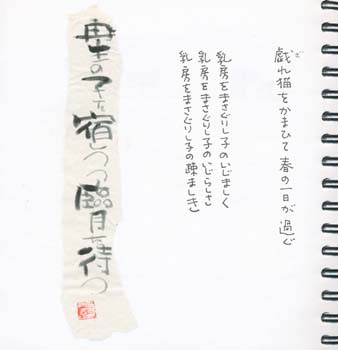 戯れ猫をかまひて春の一日が過ぐ
ざ
乳房をまさぐりし子のいじましく
乳房をまさぐりし子のいじらしさ
乳房をまさぐりし子の疎ましき
の子を宿しつつ臨月を待つ